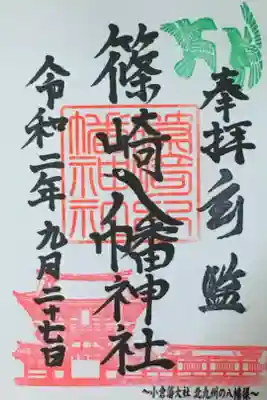 奉拝
篠崎八幡神社
令和二年九月二十七日
～小倉藩大社 北九州の八幡様～